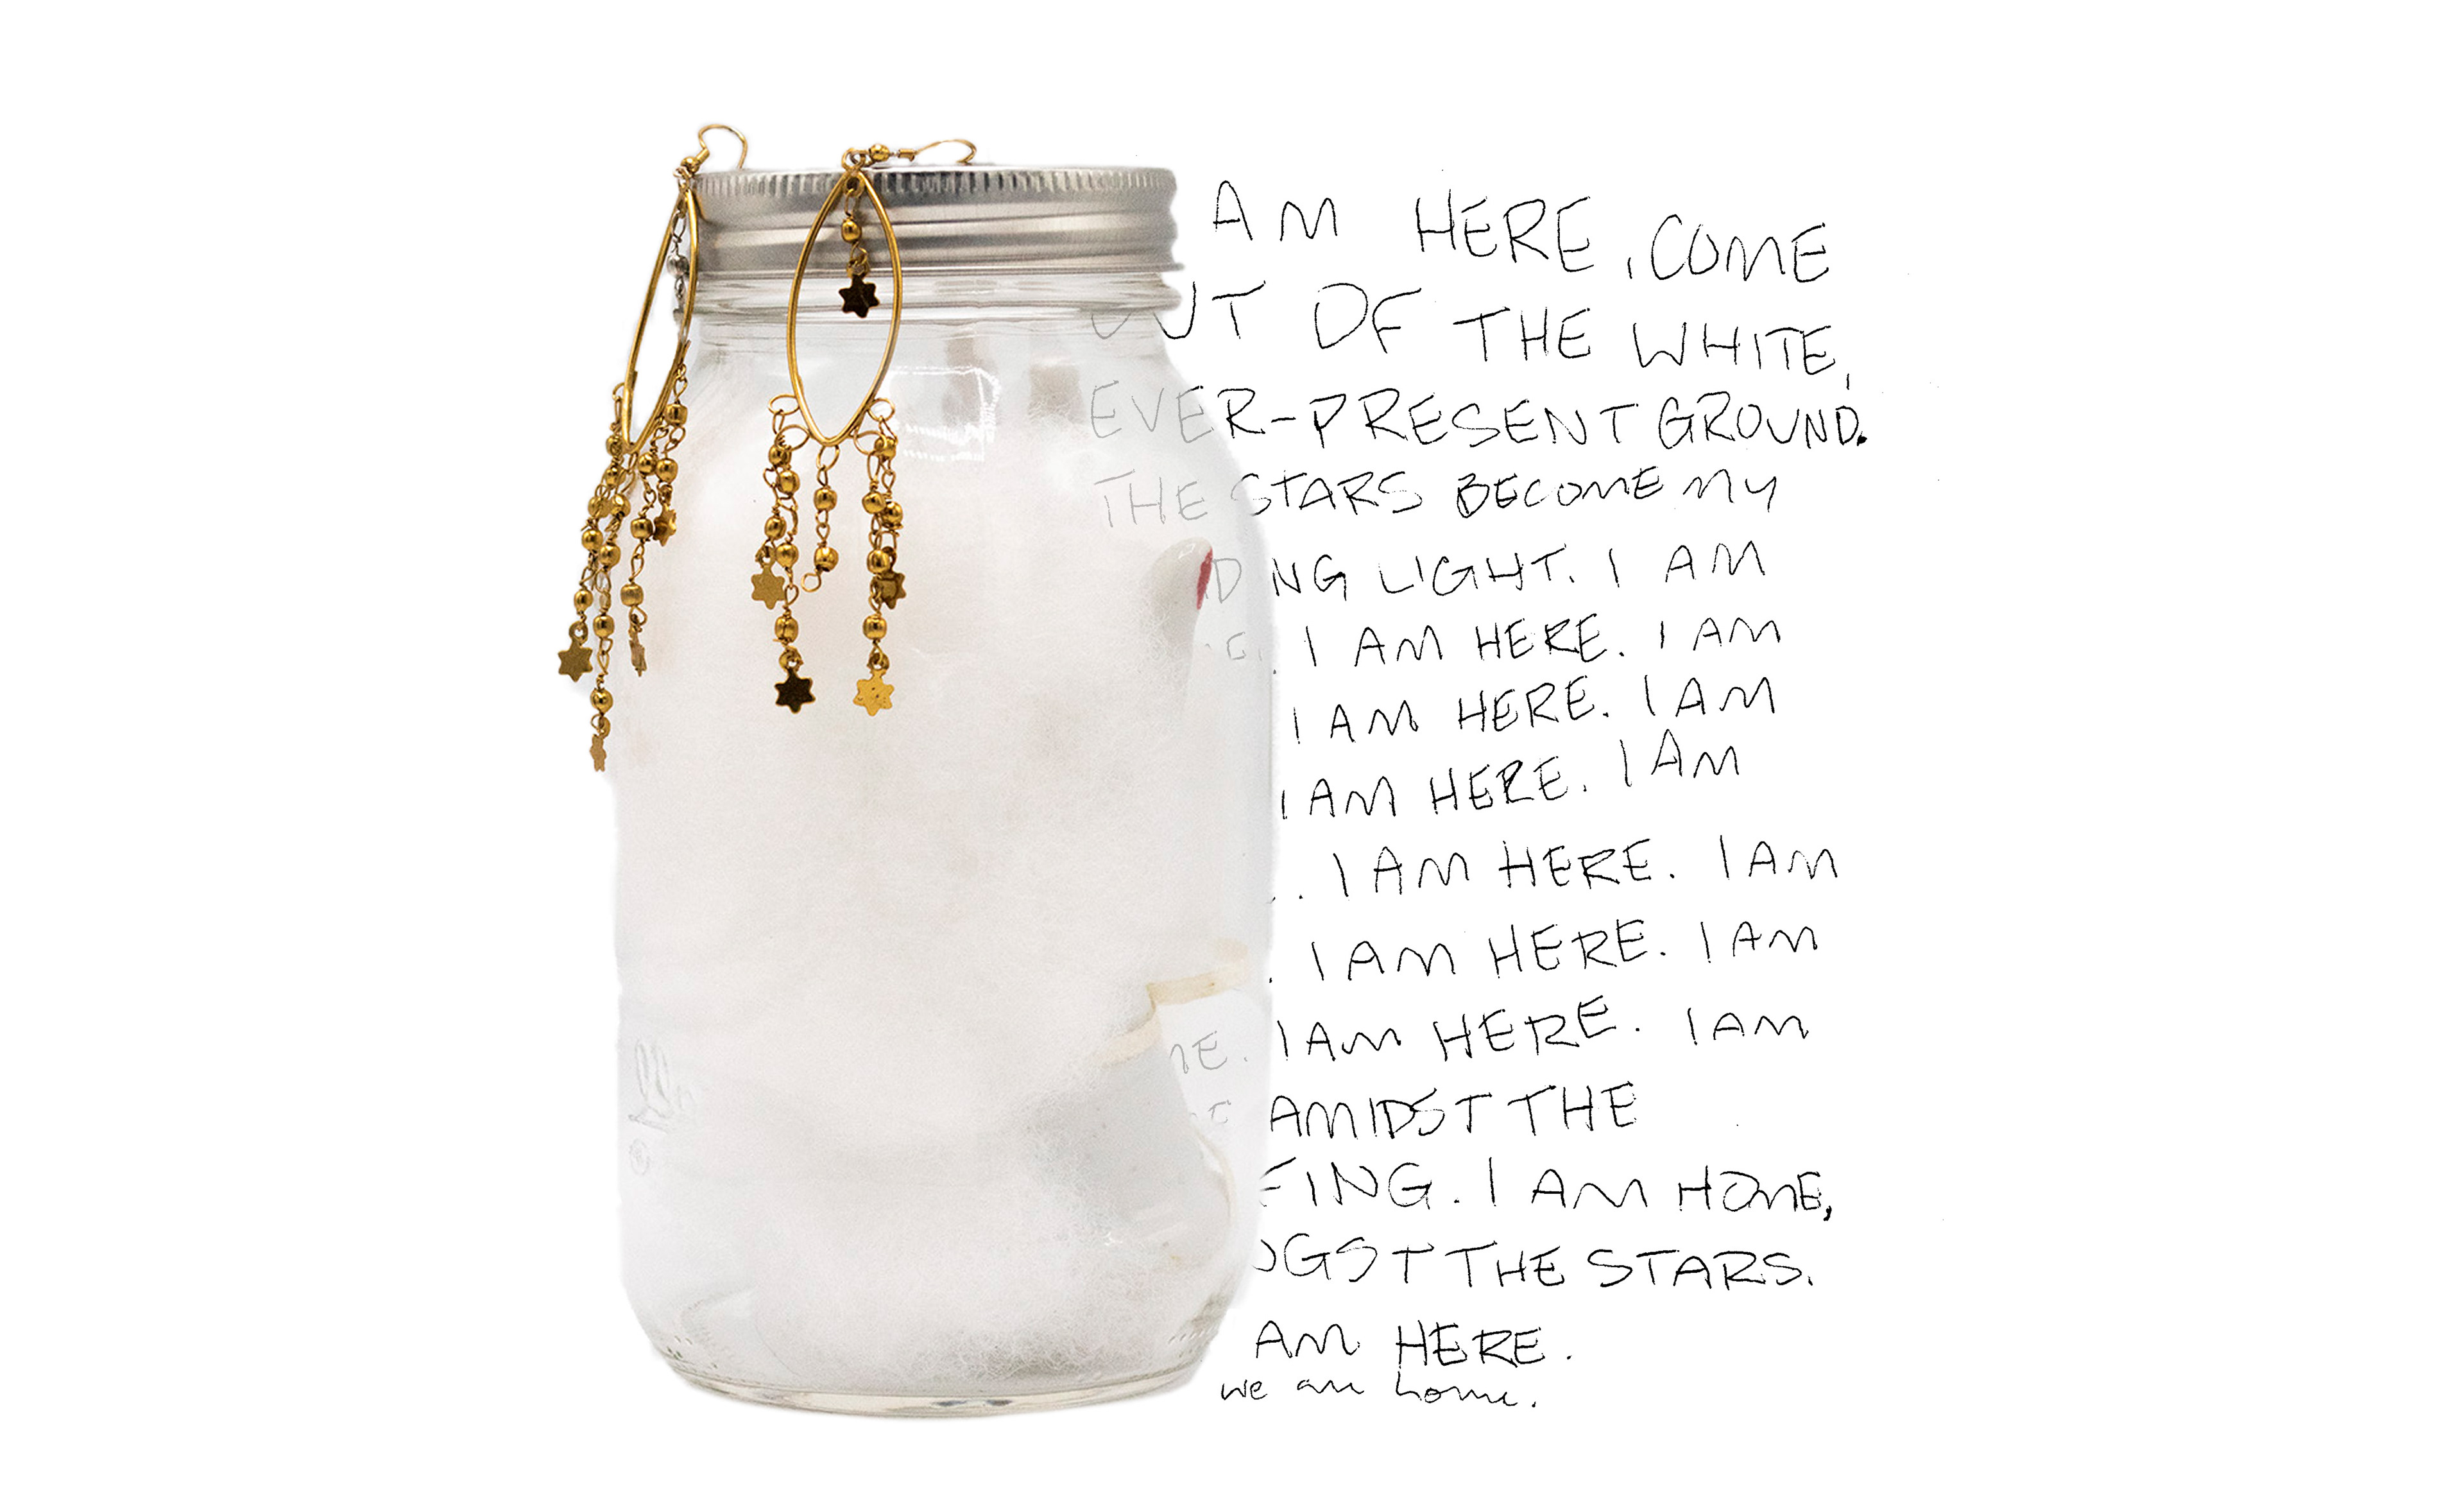 AM HERE, COME
OUT OF THE WHITE,
EVER-PRESENT GROUND.
THE STARS BECOME MY
LIGHT. I AM
I AM HERE. I AM
I AM HERE. I AM
I AM HERE. I AM
I AM HERE. I AM
I AM HERE. I AM
I AM HERE. I AM
AMIDST THE
I AM HOME,
THE STARS.
AM HERE.
we are home.